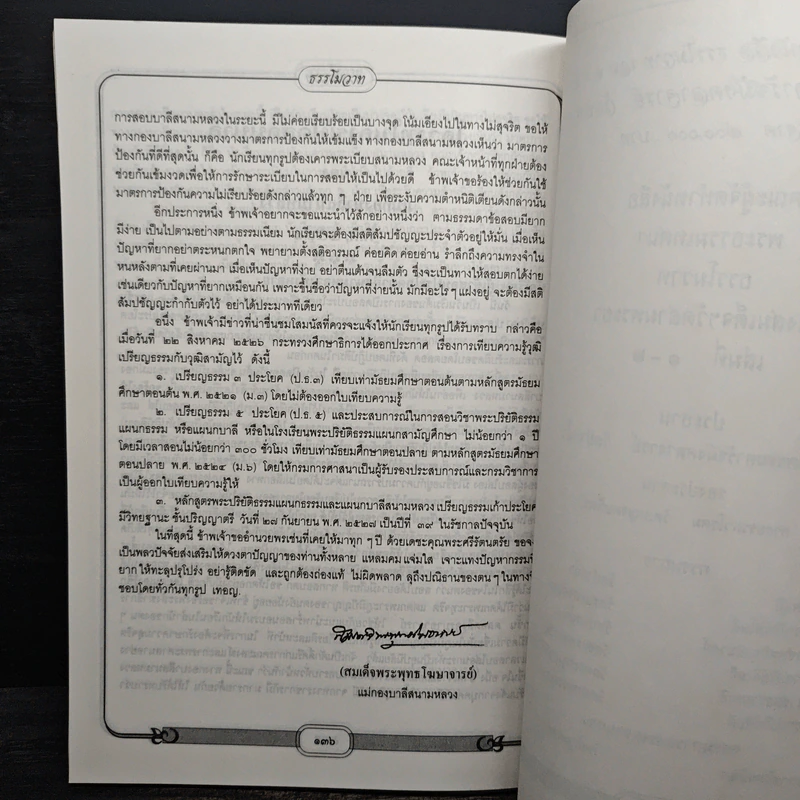 ธรรโมวาท
การสอบบาลีสนามหลวงในระยะนี้ มีไม่ค่อยเรียบร้อยเป็นบางจุด โน้มเอียงไปในทางไม่สุจริต ขอให้
ทางกองบาลีสนามหลวงวางมาตรการป้องกันให้เข้มแข็ง ทางกองบาลีสนามหลวงเห็นว่า มาตรการ
ป้องกันที่ดีที่สุดนั้น ก็คือ นักเรียนทุกรูปต้องเคารพระเบียบสนามหลวง คณะเจ้าหน้าที่ทุกฝ่ายต้อง
ช่วยกันเข้มงวดเพื่อให้การรักษาระเบียบในการสอบให้เป็นไปด้วยดี ข้าพเจ้าขอร้องให้ช่วยกันใช้
มาตรการป้องกันความไม่เรียบร้อยดังกล่าวแล้วทุก ๆ ฝ่าย เพื่อระงับความตำหนิติเตียนดังกล่าวนั้น
อีกประการหนึ่ง ข้าพเจ้าอยากจะขอแนะนำไว้สักอย่างหนึ่งว่า ตามธรรมดาข้อสอบมียาก
มีง่าย เป็นไปตามอย่างตามธรรมเนียม นักเรียนจะต้องมีสติสัมปชัญญะประจำตัวอยู่ให้มั่น เมื่อเห็น
ปัญหาที่ยากอย่าตระหนกตกใจ พยายามตั้งสติอารมณ์ ค่อยคิด ค่อยอ่าน รำลึกถึงความทรงจำใน
หนหลังตามที่เคยผ่านมา เมื่อเห็นปัญหาที่ง่าย อย่าตื่นเต้นจนลืมตัว ซึ่งจะเป็นทางให้สอบตกได้ง่าย
เช่นเดียวกับปัญหาที่ยากเหมือนกัน เพราะขึ้นชื่อว่าปัญหาที่ง่ายนั้น มักมีอะไร ๆ แฝงอยู่ จะต้องมีสติ
สัมปชัญญะกำกับตัวไว้ อย่าได้ประมาทที่เดียว
อนึ่ง ข้าพเจ้ามีข่าวที่น่าชื่นชมโสมนัสที่ควรจะแจ้งให้นักเรียนทุกรูปได้รับทราบ กล่าวคือ
เมื่อวันที่ ๒๒ สิงหาคม ๒๕๒๖ กระทรวงศึกษาธิการได้ออกประกาศ เรื่องการเทียบความรู้วุฒิ
เปรียญธรรมกับวุฒิสามัญไว้ ดังนี้
๑. เปรียญธรรม ๓ ประโยค (ป.ธ.๓) เทียบเท่ามัธยมศึกษาตอนต้นตามหลักสูตรมัธยม
ศึกษาตอนต้น พ.ศ. ๒๕๒๑ (ม.๓) โดยไม่ต้องออกใบเทียบความรู้
๒. เปรียญธรรม ๕ ประโยค (ป.ธ. ๕) และประสบการณ์ในการสอนวิชาพระปริยัติธรรม
แผนกธรรม หรือแผนกบาลี หรือในโรงเรียนพระปริยัติธรรมแผนกสามัญศึกษา ไม่น้อยกว่า ๑ ปี
โดยมีเวลาสอนไม่น้อยกว่า ๓๐๐ ชั่วโมง เทียบเท่ามัธยมศึกษาตอนปลาย ตามหลักสูตรมัธยมศึกษา
ตอนปลาย พ.ศ. ๒๕๒๔ (ม.๖) โดยให้กรมการศาสนาเป็นผู้รับรองประสบการณ์และกรมวิชาการ
เป็นผู้ออกใบเทียบความรู้ให้
๓. หลักสูตรพระปริยัติธรรมแผนกธรรมและแผนกบาลีสนามหลวง เปรียญธรรมเก้าประโยค
มีวิทยฐานะ ชั้นปริญญาตรี วันที่ ๒๗ กันยายน พ.ศ. ๒๕๒๗ เป็นปีที่ ๓๙ ในรัชกาลปัจจุบัน
ในที่สุดนี้ ข้าพเจ้าขออำนวยพรเช่นที่เคยให้มาทุก ๆ ปี ด้วยเดชะคุณพระศรีรัตนตรัย ขอจง
เป็นพลวปัจจัยส่งเสริมให้ดวงตาปัญญาของท่านทั้งหลาย แหลมคม แจ่มใส เจาะแทงปัญหากรรม
ยาก ให้ทะลุปรุโปร่ง อย่ารู้ติดขัด และถูกต้องถ่องแท้ ไม่ผิดพลาด ลุถึงปณิธานของตน ๆ ในทาง
ชอบโดยทั่วกันทุกรูป เทอญ.
(สมเด็จพระพุทธโฆษาจารย์)
แม่กองบาลีสนามหลวง
๑๓๖